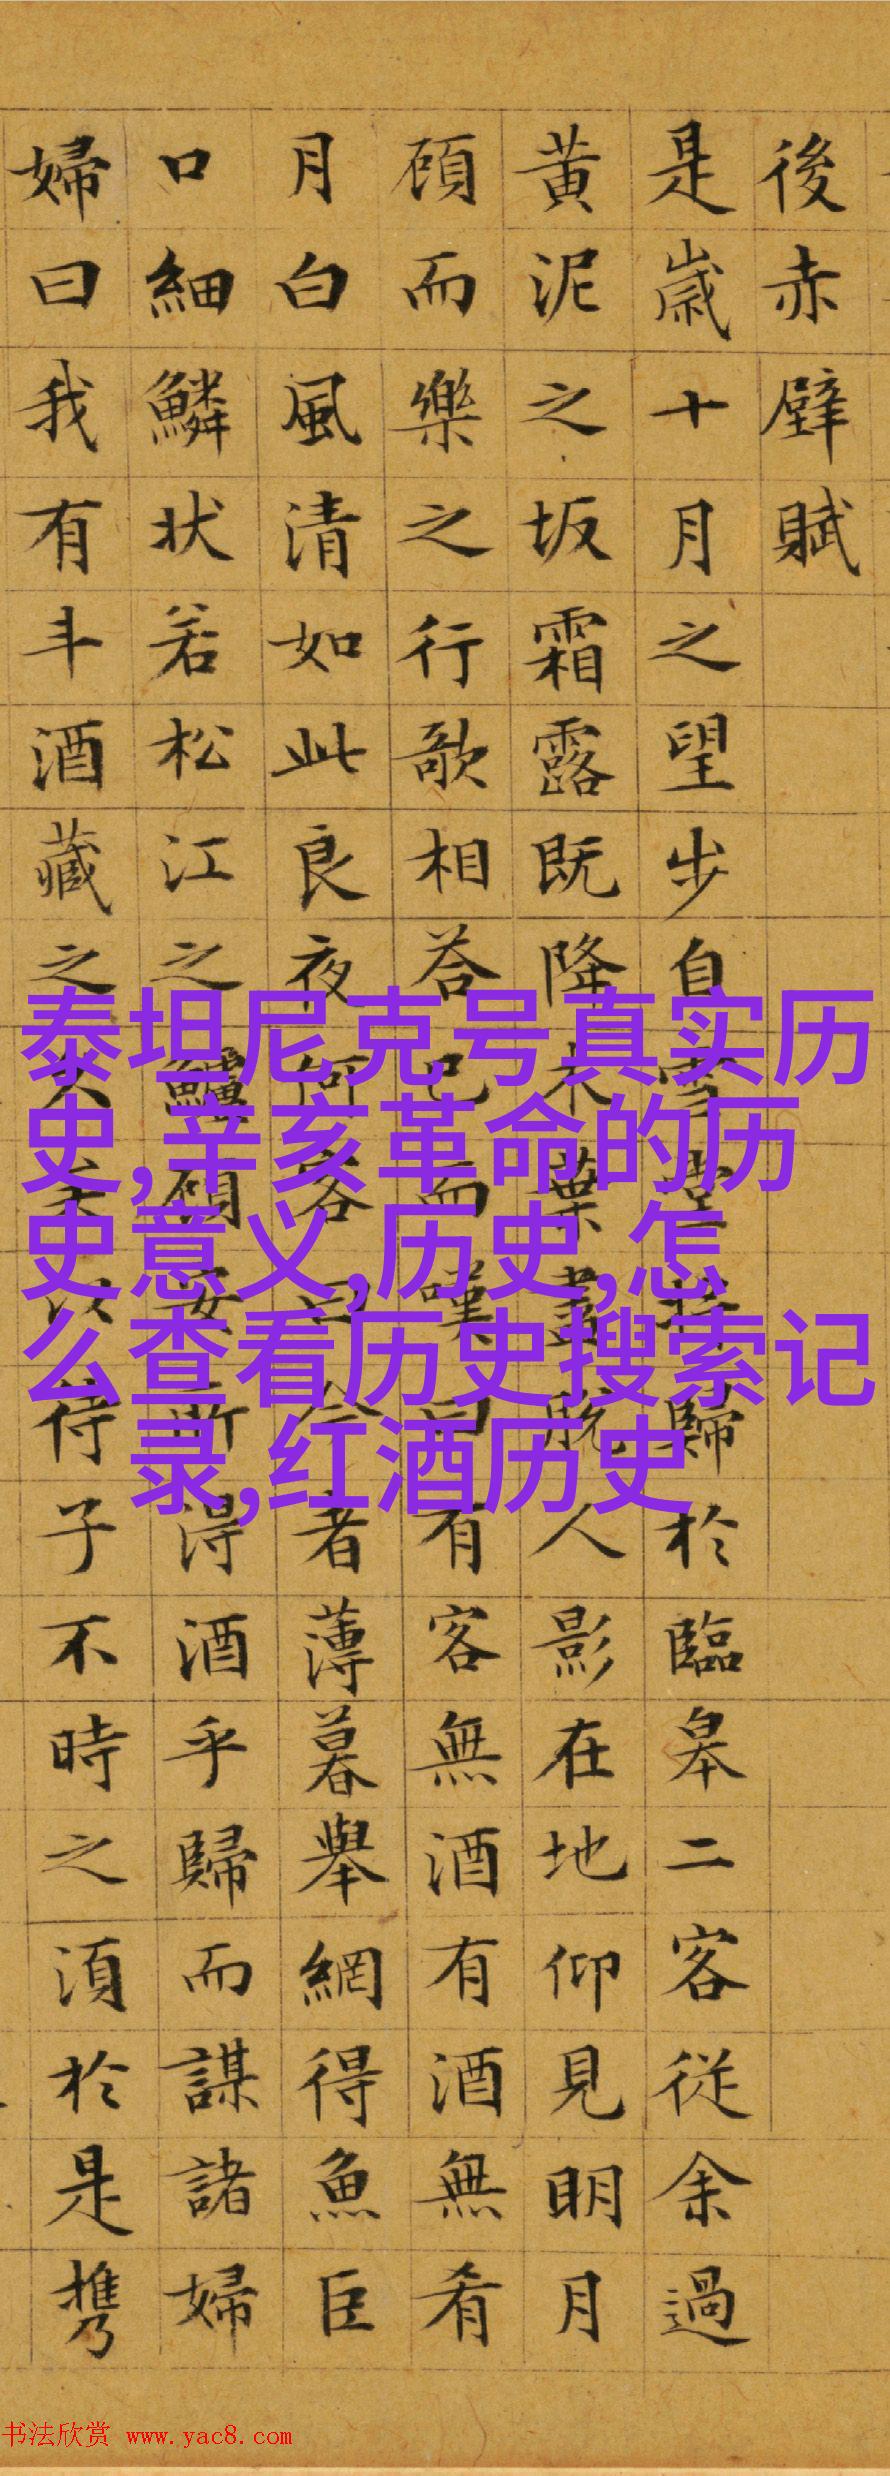 後赤壁賦
是歲十月之望步自雪堂將歸於臨皋二客從余過
黃泥之坂霜露既降木葉盡脫人影在地仰見明月
顧而樂之行歌相答已而嘆曰有客無酒有酒無肴
月白風清如此良夜何客曰今者薄暮舉網得魚巨
口細鱗狀若松江之鱸顧安所得酒乎歸而謀諸婦
婦曰我有斗酒藏之久矣以待子不時之須於是攜
泰坦尼克号真实历
史,辛亥革命的历
史意义,历史,怎
么查看历史搜索记
录,红酒历史
书法欣赏 www.yac8.com